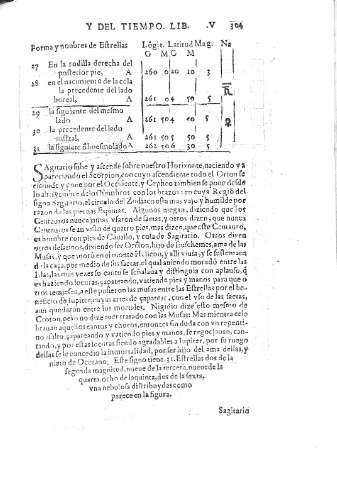 Y DEL TIEMPO. LIB. V 304
Forma y nombres de Estrellas Lōgit. Latitud Mag. Na
G M G M
27 En la rodilla derecha del
posterior pie, A 260 0 20 10 3
28 en el nacimiento de la cola
la precedente del lado
boreal, A 261 0 4 50 5
29 la siguiente del mesmo
lado A 261 50 4 50 5
30 la precedente del lado
austral, A 261 50 5 50 5
31 la siguiēte dl mesmo lado A 263 0 6 30 5
SAgitario sube y asciende sobre nuestro Horizonte, naciendo y a
pareciendo el Scorpion, con cuyo ascendiente todo el Orion se
esconde y pone por el Occidente, y Cepheo tambien se pone desde
los hombros con los brazos: en cuya Regiō del
signo Sagitario, el circulo del Zodiaco esta mas vajo y humilde por
razon de las piernas Equinas. Algunos niegan, diziendo que los
Centauros nunca jamas vsaron de saetas, y otros dizen, que nunca
Centauro se a visto de quatro pies, mas dizen, que este Centauro,
es hombre con pies de Cavallo, y cola de Sagitario. Otros dizen
defectos, diziendo ser Oriston, hijo de Euschemes, ama de las
Musas, y que moró en el monte Helicon, y alli vivia, y se sustentava
de la caça, por medio de sus saetas, el qual aniendo morado entre las
Islas, las mas vezes cō canto se señalava y distinguia con aplauso, q̄
es haziendo locuras, çapateando, vatiendo pies y manos para que o
tros , se pusieron las musas entre las Estrellas por el be
neficio de Iupiter, cuyas artes de çapatear, con el vso de las saetas,
aun quedaron entre los mortales. Nigidio dize esto mesmo de
Croton, pero no dize auer tratado con las Musas: Mas mientra cele
bravan aquellos cantos y choros, entonces sin duda con vn repenti-
no salto, çapateando y vatiendo los pies y manos, se regozijavan, can-
tando, y por estas locuras siendo agradables a Iupiter, por su ruego
dellas se le concedio la inmortalidad, por ser hijo del ama dellas, y
nieto de Occeano. Este signo tiene 31. Estrellas dos de la
segunda magnitud, nueve de la tercera, nueve de la
quarta, ocho de la quinta, dos de la sexta,
vna nebulosa distribuydas como
parece en la figura.
Sagitario